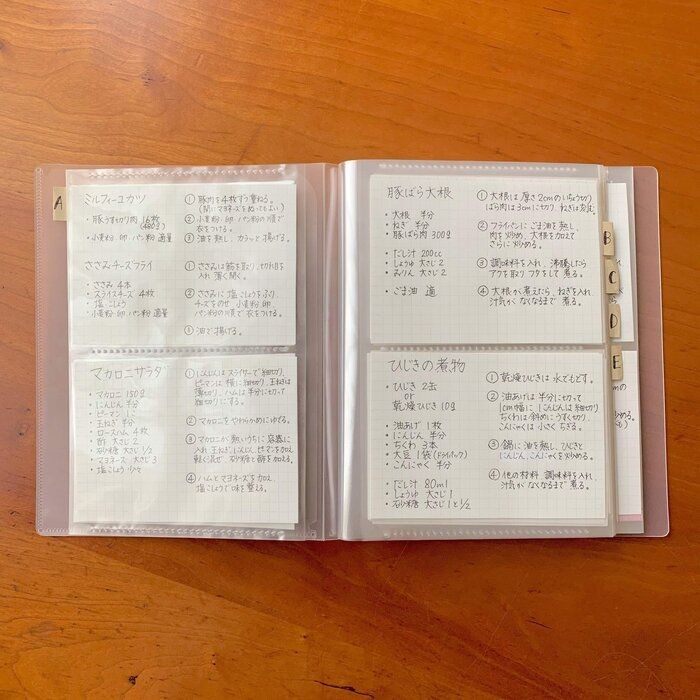 A
ミルフィーユカツ
・豚うす切り肉 16枚
(480g)
・小麦粉 卵 パン粉 適量
① 豚肉を4枚ずつ重ねる。
(間にマヨネーズをぬってもよい)
② 小麦粉 卵 パン粉の順で
衣をつける。
③ 油を熱し、カラッと揚げる。
ささみチーズフライ
・ささみ 4本
・スライスチーズ 4枚
・塩こしょう
・小麦粉・卵・パン粉 適量
① ささみは筋を取り、切れ目を
入れ 薄く開く。
② ささみに 塩こしょうをふり、
チーズをのせ 小麦粉 卵
パン粉の順で 衣をつける。
① 油で揚げる。
マカロニサラダ
・マカロニ 150g
・にんじん 半分
・ピーマン 1コ
・玉ねぎ 半分
・ロースハム 4枚
・酢 大さじ2
・砂糖 大さじ1/2
・マヨネーズ 大さじ3
・塩こしょう 少々
① にんじんは スライサーで 細切り、
ピーマンは 横に細切り、玉ねぎは
薄切り、ハムは 半分に切って
細切りにする。
② マカロニを やわらかめにゆでる。
③ マカロニが 熱いうちに 容器に
入れ 玉ねぎ、にんじん、ピーマンを加え
軽く混ぜ 砂糖と酢を加える。
④ ハムと マヨネーズを 加え、
塩こしょうで 味を整える。
豚ばら大根
・大根 半分
・ねぎ 半分
・豚ばら肉 300g
・だし汁 200cc
・しょうゆ 大さじ2
・みりん 大さじ2
・ごま油 適
① 大根は 厚さ2cmのいちょう切り
ばら肉は3cmに切り、ねぎは刻む。
② フライパンに ごま油を 熱し、
肉を炒め、大根を加えて
さらに 炒める。
③ 調味料を入れ、沸騰したら
アクを取り フタをして 煮る。
④ 大根が 煮えたら、ねぎを入れ、
汁気が なくなるまで 煮る。
ひじきの煮物
・ひじき 2缶
or
乾燥ひじき 10g
・油あげ 1枚
・にんじん 半分
・ちくわ 3本
・大豆 1袋(ドライパック)
・こんにゃく 半分
・だし汁 80ml
・しょうゆ 大さじ1
・砂糖 大さじ1と1/2
① 乾燥ひじきは 水でもどす。
② 油あげは 半分に切って
1cm幅に、にんじんは細切り
ちくわは 斜めにうすく切り、
こんにゃくは 小さく ちぎる。
③ 鍋に油を熱し、ひじきと
にんじん、こんにゃくを炒める。
④ 他の材料 調味料を入れ
汁気が なくなるまで 煮る。
B
C
D
E